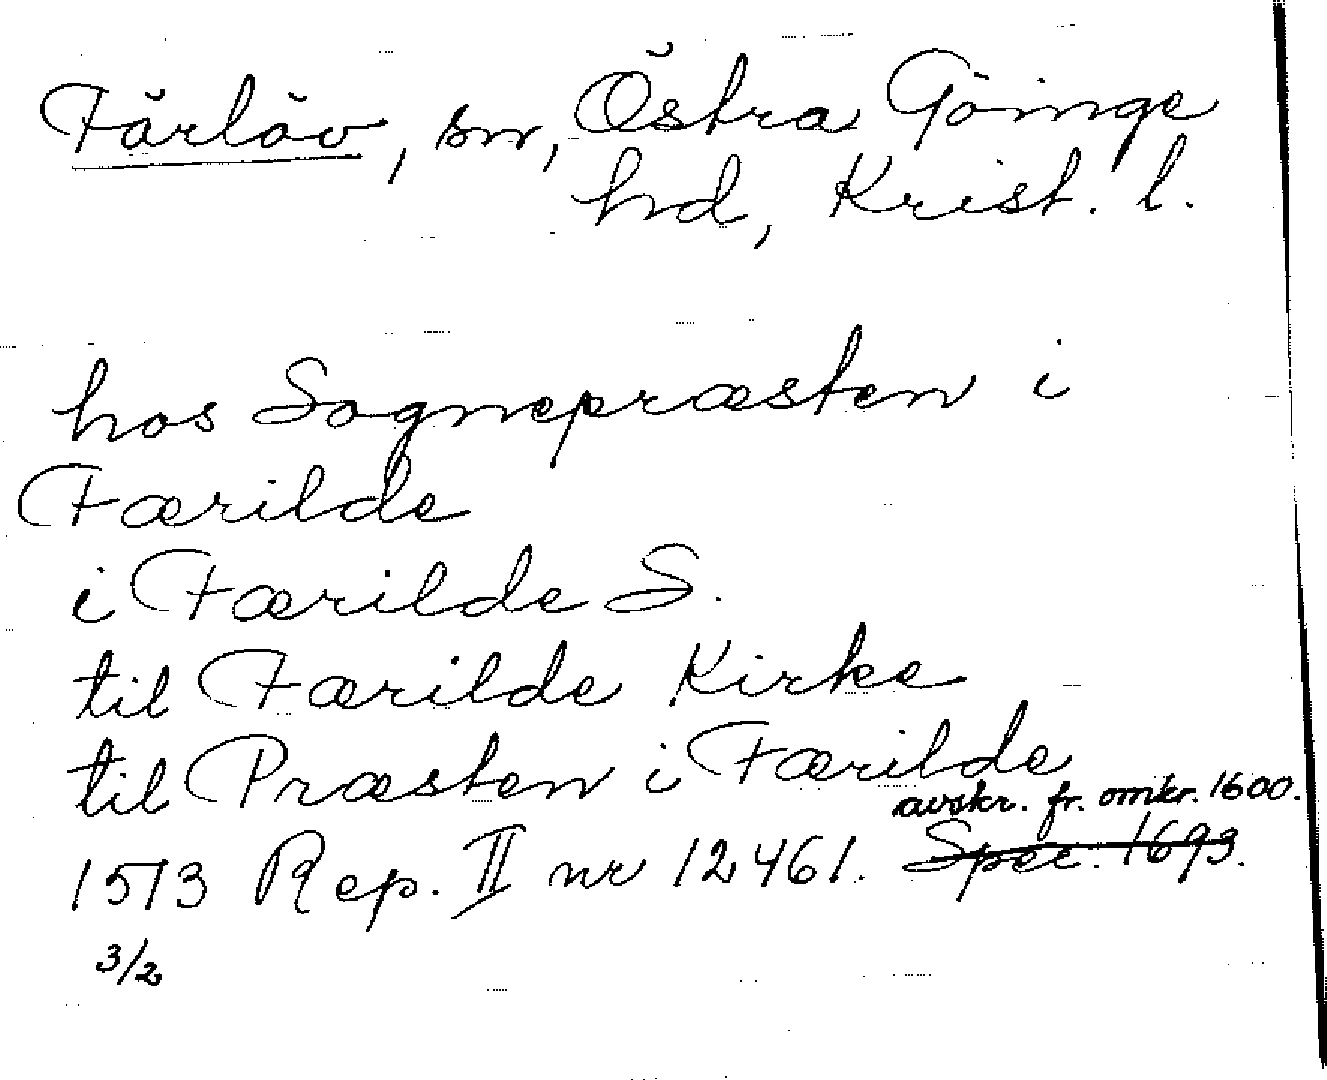 Färlöv, sn, Östra Göinge
hd, Krist. l.
hos Sognepræsten i
Færilde
i Færilde S.
til Færilde Kirke
til Præsten i Færilde
avskr. fr. omkr. 1600.
1513 Rep. II nr 12461. Spec. 1693.
3/2